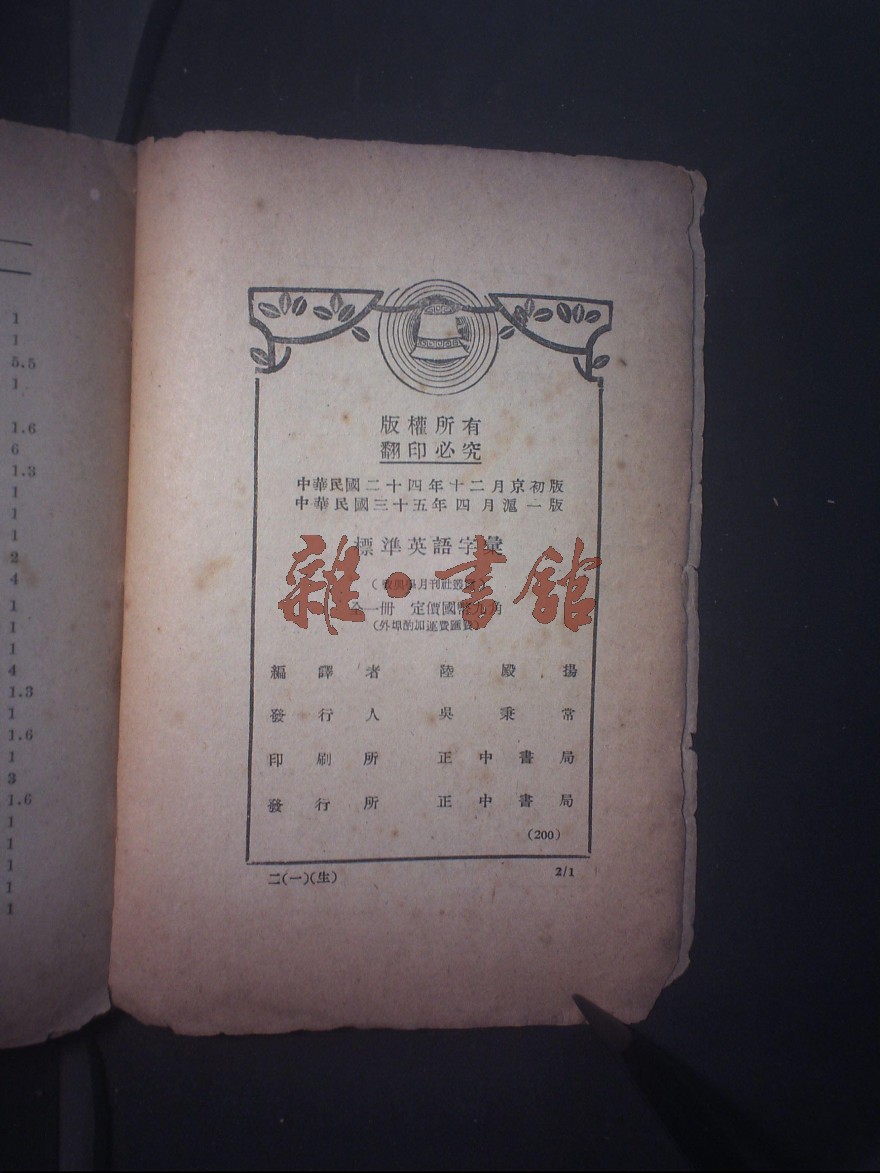 1
1
5.5
1
1.6
6
1.3
1
1
1
1
2
4
1
1
1
4
1.3
1
1.6
1
3
1.6
1
1
1
1
1
版權所有
翻印必究
中華民國二十四年十二月京初版
中華民國三十五年四月滬一版
標準英語字彙
(教與學月刊社叢書)
全一冊 定價國幣九角
(外埠酌加運費匯費)
雜·書館
編譯者 陸殿揚
發行人 吳秉常
印刷所 正中書局
發行所 正中書局
(200)
二(一)(生) 2/1